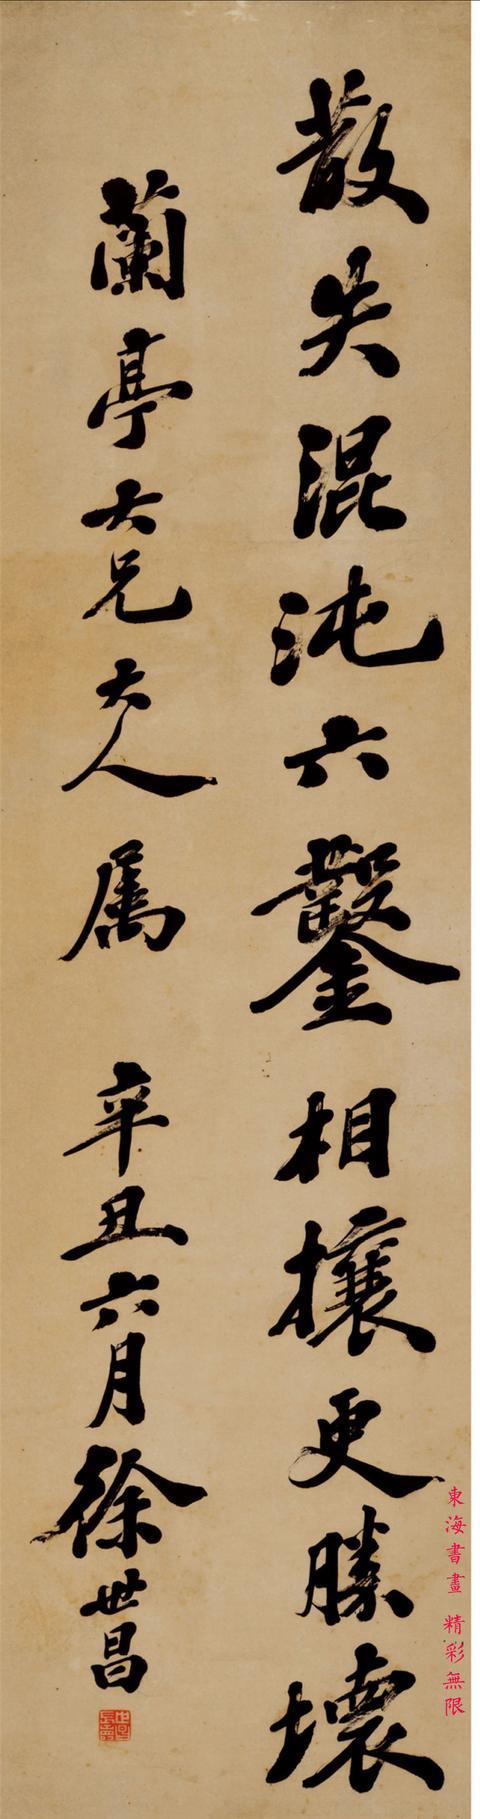 散失混沌六鑿相攘更勝壞
蘭亭大兄大人属 辛丑六月徐世昌
東海書畫 精彩無限